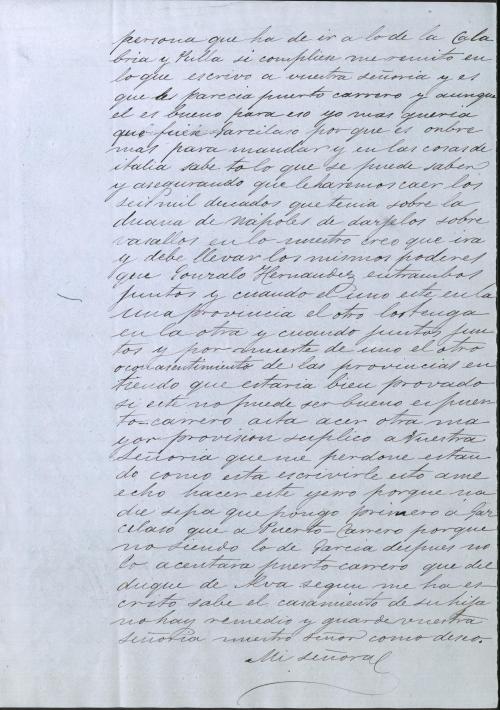 persona que ha de ir a lo de la Cala
bria y Pulla si complien me remito en
lo que escrivo a vuestra señoria y es
que les parecia puerto carrero y aunque
el es bueno para eso yo mas queria
que fuese Garcilaso por que es onbre
mas para mandar y en las cosas de
italia sabe to lo que se puede saber
y asegurando que le haremos caer los
seis mil ducados que tenia sobre la
duana de Napoles de darselos sobre
vasallos en lo nuestro creo que ira
y debe llevar los mismos poderes
que Gonzalo Hernandez entrambos
juntos y cuando el uno este en la
una provincia el otro los tenga
en la otra y cuando juntos jun
tos y por muerte de uno el otro
de las provincias en
tiendo que estaria bien provado
si este no puede ser bueno es puer
to-carrero asta acer otra ma
yor provision suplico a Vuestra
Señoria que me perdone estan
do como esta escrivirle esto a me
echo hacer este yerro porque na
die sepa que pongo primero a Gar
cilaso que a Puerto-Carrero porque
no siendo lo de Garcia despues no
lo acentara puerto carrero que del
duque de Alva segun me ha es
crito sabe el casamiento de su hija
no hay remedio y guarde vuestra
señoria nuestro señor como deseo.
Mi señora